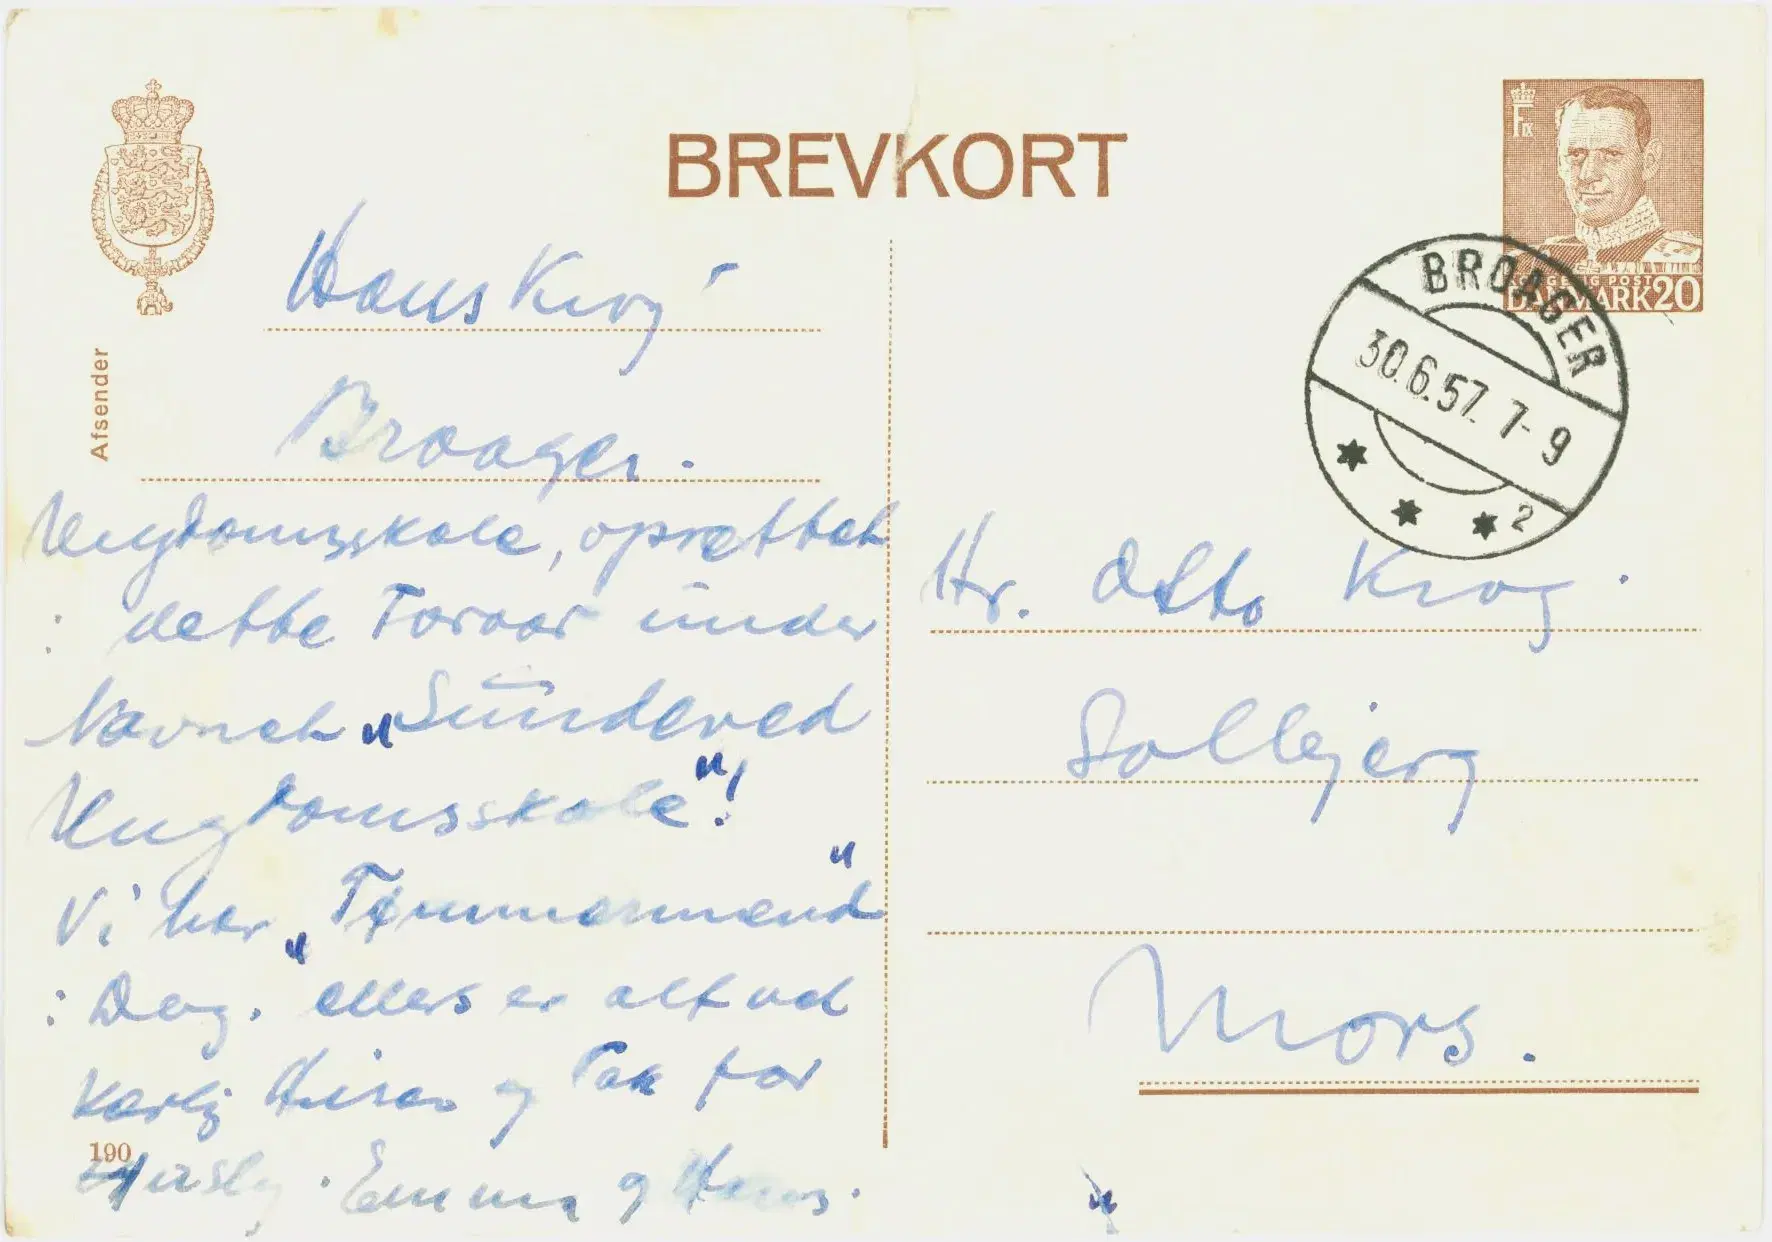 BREVKORT
F IX
KONGELIG POST
DANMARK 20
BROAGER
30.6.57. 7-9
2
Afsender
Hans Krog
Broager.
Ungdomsskole, oprettet
i dette Foraar under
Navnet "Sundeved
Ungdomsskole"!
Vi har "Tømmermænd"
i Dag. ellers er alt vel
Kærlig Hilsen og Tak for
190
Emma og Hans.
Hr. Otto Krog.
Solbjerg
Mors.